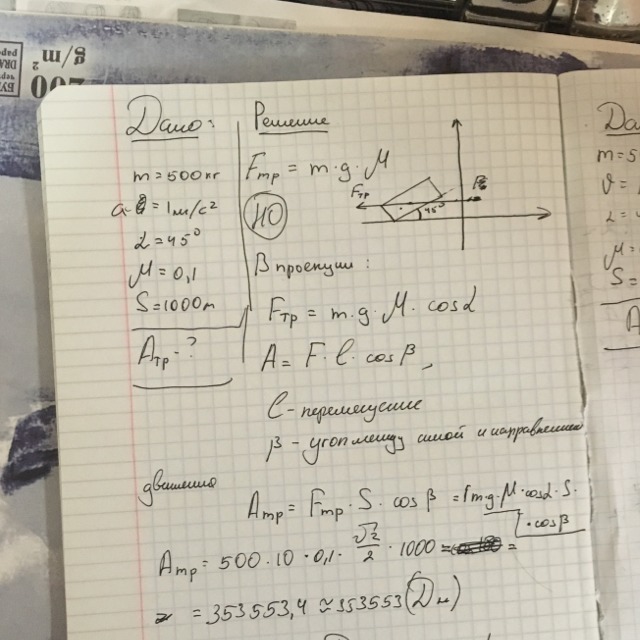 200
g/m²
Дано:
m = 500 кг
a = 1 м/с²
α = 45°
μ = 0,1
S = 1000 м
Aтр - ?
Решение
Fтр = m·g·μ
НО
Fтр
45°
В проекции:
Fтр = m·g·μ·cosα
A = F·l·cosβ,
l - перемещение
β - угол между силой и направлением
движения
Aтр = Fтр·S·cosβ = m·g·μ·cosα·S·
·cosβ
Aтр = 500·10·0,1·√2/2·1000 = =
= 353553,4 ≈ 353553 (Дж)
Да
m = 5
S =